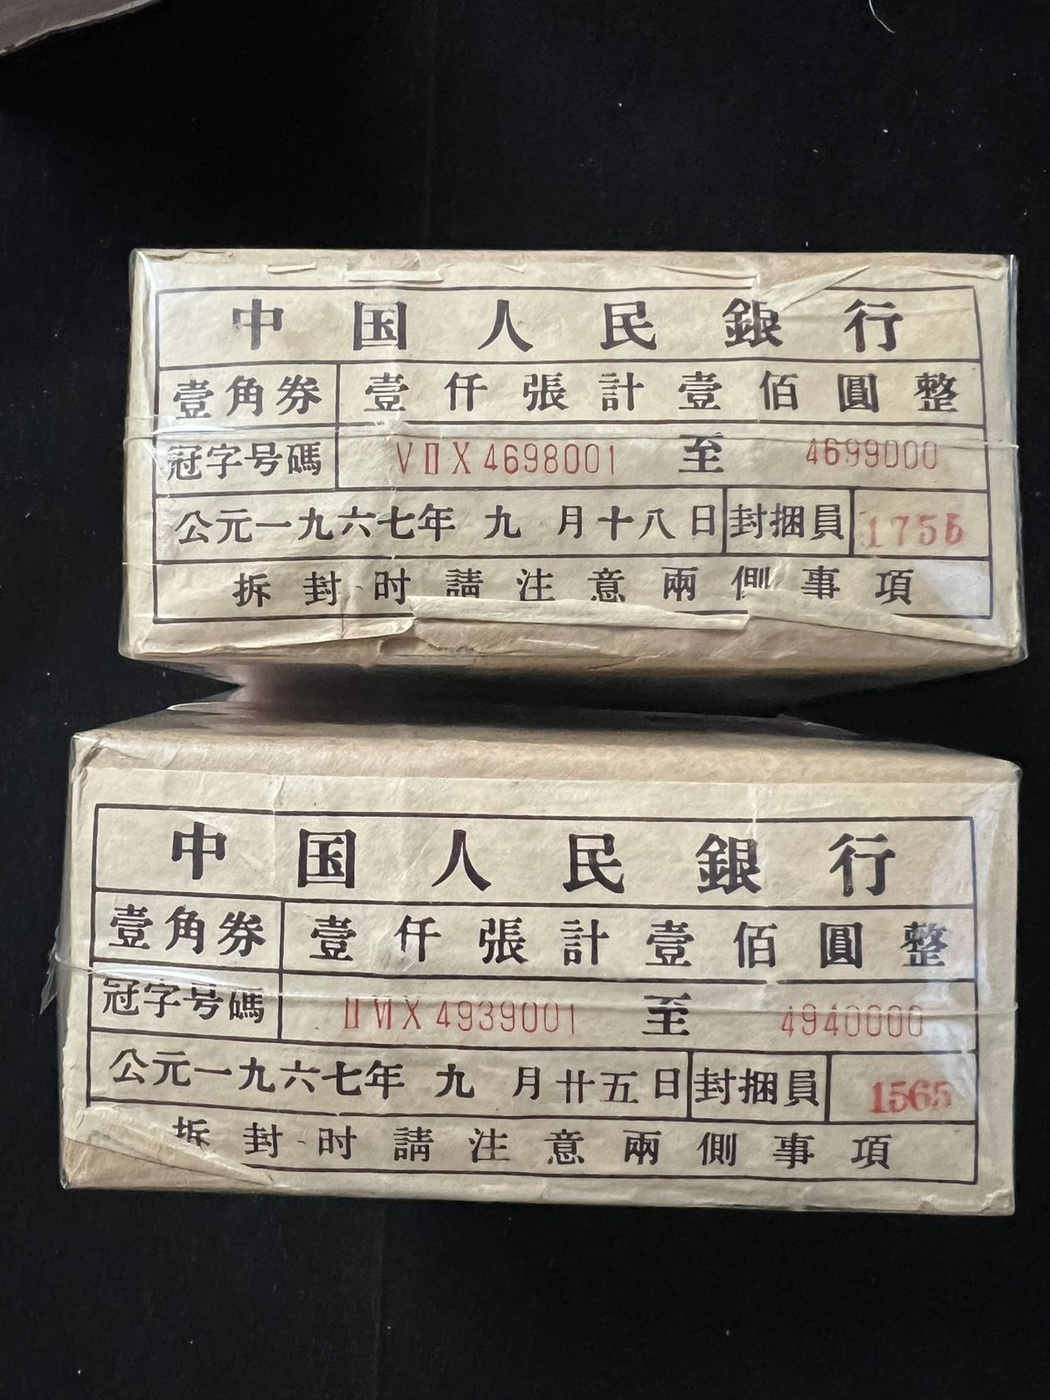 中国人民銀行
壹角券 壹仟張計壹佰圓整
冠字号碼 VⅡX 4698001 至 4699000
公元一九六七年 九 月十八日 封捆員 1755
拆封时請注意兩側事項
中国人民銀行
壹角券 壹仟張計壹佰圓整
冠字号碼 ⅡⅥX 4939001 至 4940000
公元一九六七年 九 月廿五日 封捆員 1565
拆封时請注意兩側事項